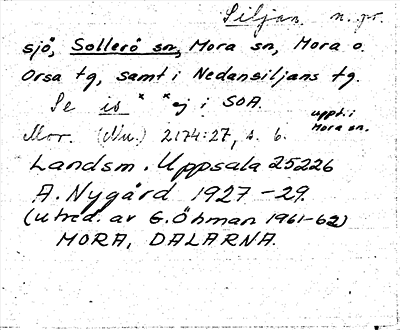 Siljan n. pr.
sjö, Sollerö sn, Mora sn, Mora o.
Orsa tg, samt i Nedansiljans tg.
Se is x x ej i SOA.
uppt. i
Mora sn.
Mor. (Mu.) 2174:27, s. 6.
Landsm. Uppsala 25226
A. Nygård 1927-29.
(utred. av G. Öhman 1961-62)
MORA, DALARNA.